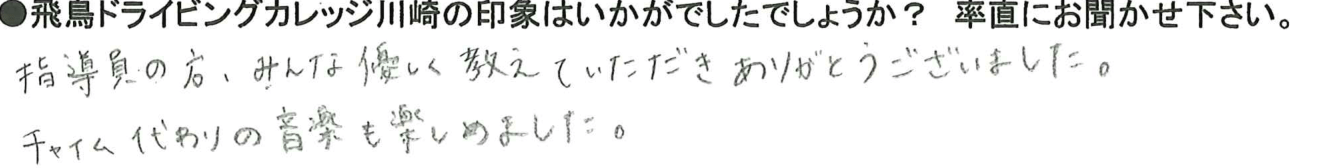 ●飛鳥ドライビングカレッジ川崎の印象はいかがでしたでしょうか？　率直にお聞かせ下さい。
指導員の方、みんな優しく教えていただきありがとうございました。
チャイム代わりの音楽も楽しめました。